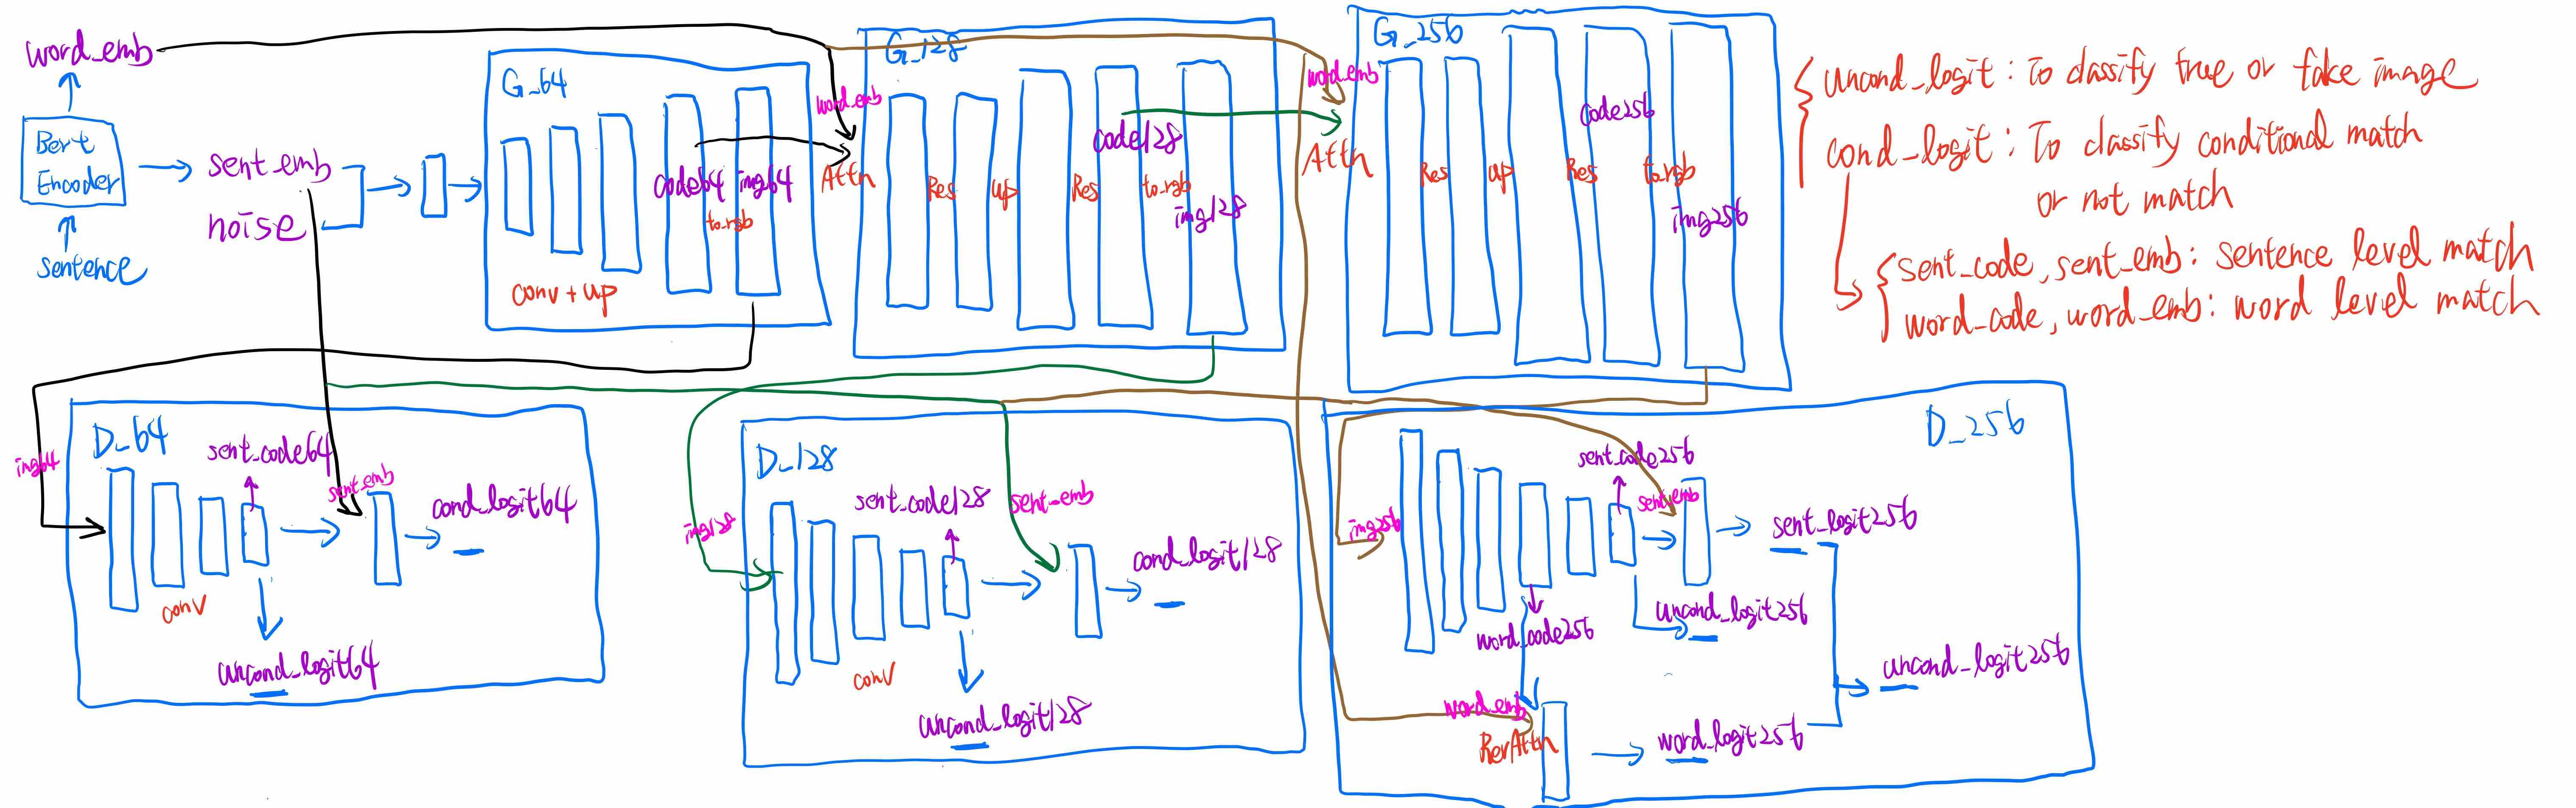 word_emb
Bert
Encoder
sentence
sent_emb
noise
G_64
code64
img64
to_rgb
conv + up
word_emb
Attn
G_128
Res
up
Res
code128
to_rgb
img128
word_emb
Attn
G_256
Res
up
Res
code256
to_rgb
img256
uncond_logit: To classify true or fake image
cond_logit: To classify conditional match
or not match
sent_code, sent_emb: sentence level match
word_code, word_emb: word level match
D_64
img64
sent_code64
sent_emb
cond_logit64
conv
uncond_logit64
D_128
img128
sent_code128
sent_emb
cond_logit128
conv
uncond_logit128
D_256
img256
sent_code256
sent_emb
sent_logit256
uncond_logit256
word_code256
word_emb
RerAttn
word_logit256
uncond_logit256